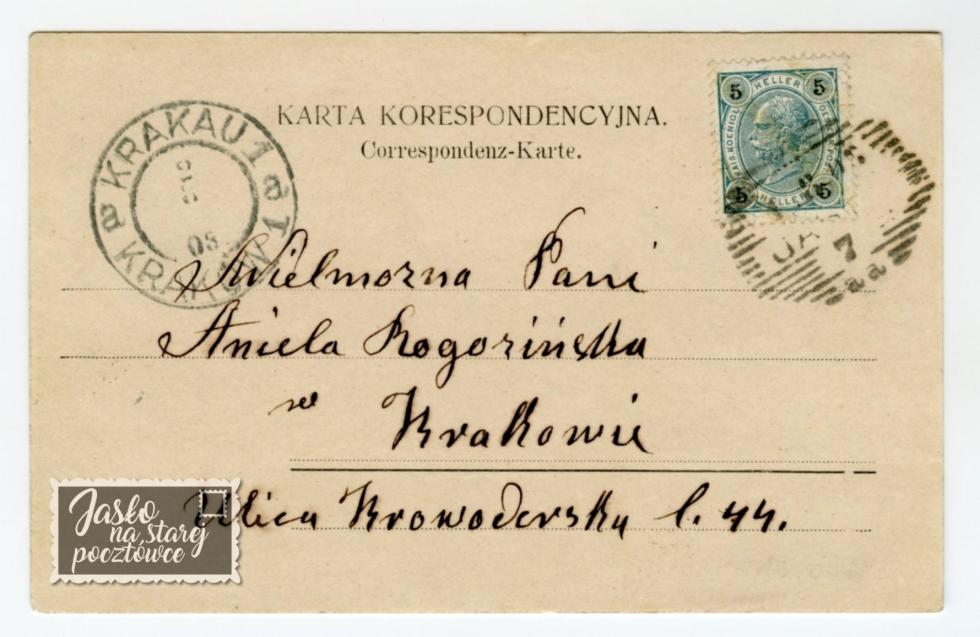 KARTA KORESPONDENCYJNA.
Correspondenz-Karte.
5 HELLER 5
5 HELLER 5
KRAKAU 1
KRAKÓW 1
Wielmożna Pani
Aniela Rogozińska
w
Krakowie
Ulica Krowoderska l. 44.
Jasło
na starej
pocztówce